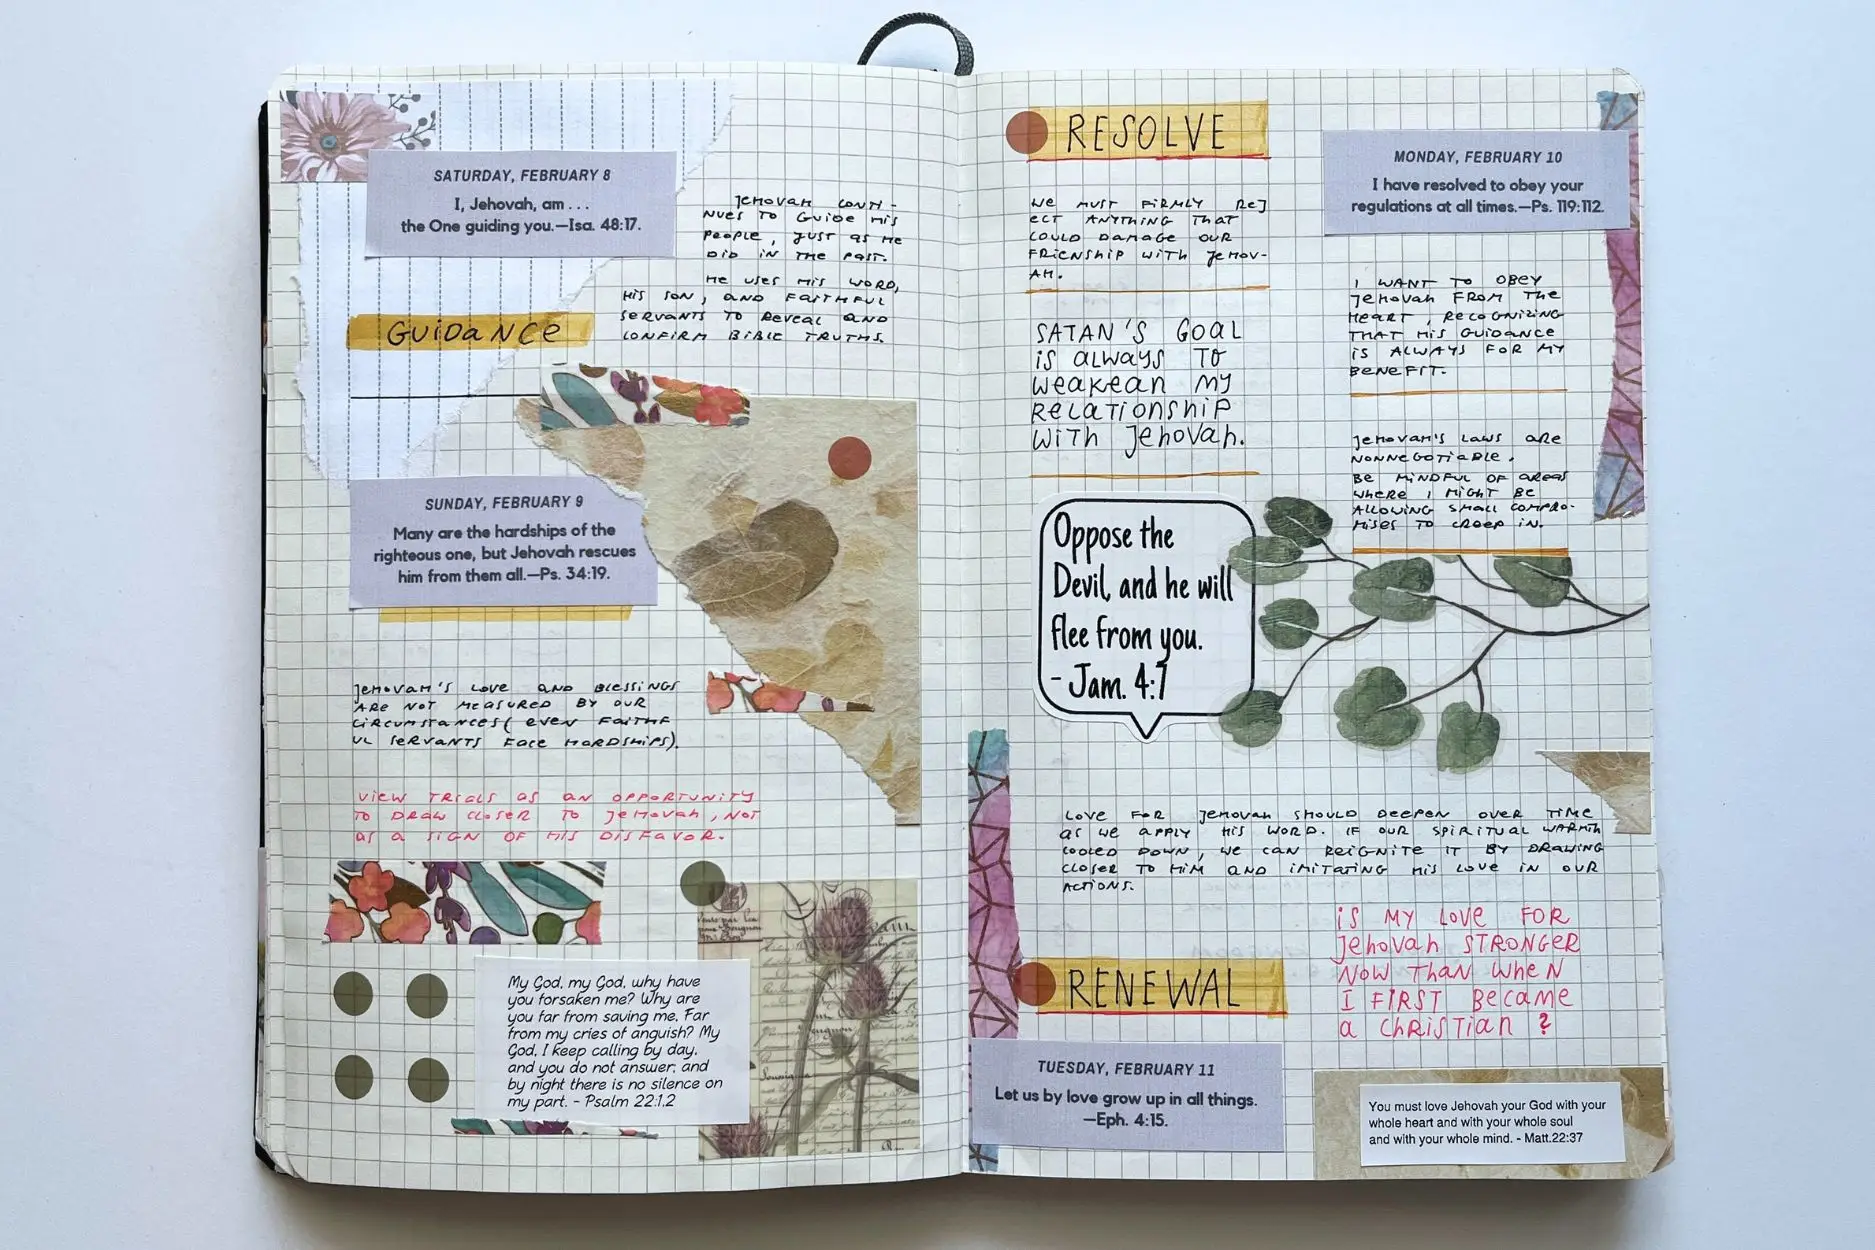 SATURDAY, FEBRUARY 8
I, Jehovah, am . . .
the One guiding you.—Isa. 48:17.
JEHOVAH CONTI-
NUES TO GUIDE HIS
PEOPLE, JUST AS HE
DID IN THE PAST.
HE USES HIS WORD,
HIS SON, AND FAITHFUL
SERVANTS TO REVEAL AND
CONFIRM BIBLE TRUTHS.
GUIDANCE
SUNDAY, FEBRUARY 9
Many are the hardships of the
righteous one, but Jehovah rescues
him from them all.—Ps. 34:19.
JEHOVAH'S LOVE AND BLESSINGS
ARE NOT MEASURED BY OUR
CIRCUMSTANCES( EVEN FAITHF
UL SERVANTS FACE HARDSHIPS).
VIEW TRIALS AS AN OPPORTUNITY
TO DRAW CLOSER TO JEHOVAH, NOT
AS A SIGN OF HIS DISFAVOR.
My God, my God, why have
you forsaken me? Why are
you far from saving me, Far
from my cries of anguish? My
God, I keep calling by day,
and you do not answer; and
by night there is no silence on
my part. - Psalm 22:1,2
RESOLVE
WE MUST FIRMLY REJ
ECT ANYTHING THAT
COULD DAMAGE OUR
FRIENSHIP WITH JEHOV-
AH.
SATAN'S GOAL
IS ALWAYS TO
WEAKEAN MY
RELATIONSHIP
WITH JEHOVAH.
Oppose the
Devil, and he will
flee from you.
- Jam. 4:7
MONDAY, FEBRUARY 10
I have resolved to obey your
regulations at all times.—Ps. 119:112.
I WANT TO OBEY
JEHOVAH FROM THE
HEART, RECOGNIZING
THAT HIS GUIDANCE
IS ALWAYS FOR MY
BENEFIT.
JEHOVAH'S LAWS ARE
NONNEGOTIABLE.
BE MINDFUL OF AREAS
WHERE I MIGHT BE
ALLOWING SMALL COMPRO-
MISES TO CREEP IN.
LOVE FOR JEHOVAH SHOULD DEEPEN OVER TIME
AS WE APPLY HIS WORD. IF OUR SPIRITUAL WARMTH
COOLED DOWN, WE CAN REIGNITE IT BY DRAWING
CLOSER TO HIM AND IMITATING HIS LOVE IN OUR
ACTIONS.
RENEWAL
TUESDAY, FEBRUARY 11
Let us by love grow up in all things.
—Eph. 4:15.
IS MY LOVE FOR
JEHOVAH STRONGER
NOW THAN WHEN
I FIRST BECAME
A CHRISTIAN ?
You must love Jehovah your God with your
whole heart and with your whole soul
and with your whole mind. - Matt.22:37